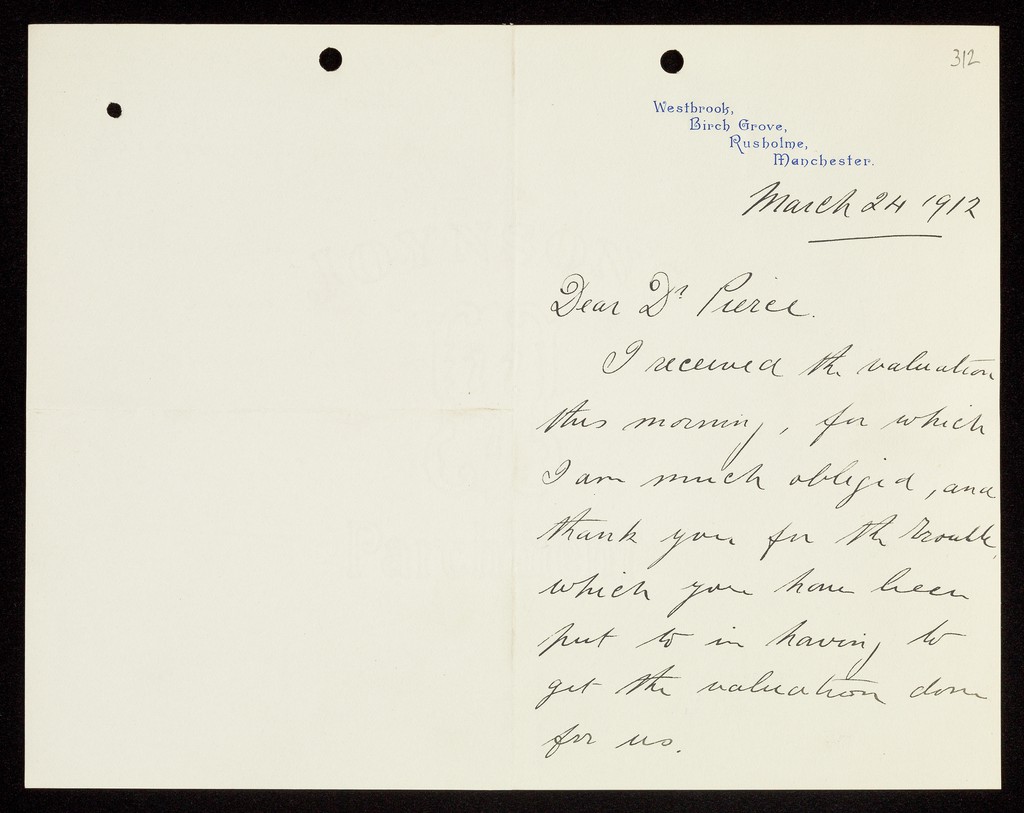 312
Westbrook,
Birch Grove,
Rusholme,
Manchester.
March 24 1912
Dear Dr Pierce.
I received the valuation
this morning, for which
I am much obliged, and
thank you for the trouble,
which you have been
put to in having to
get the valuation done
for us.